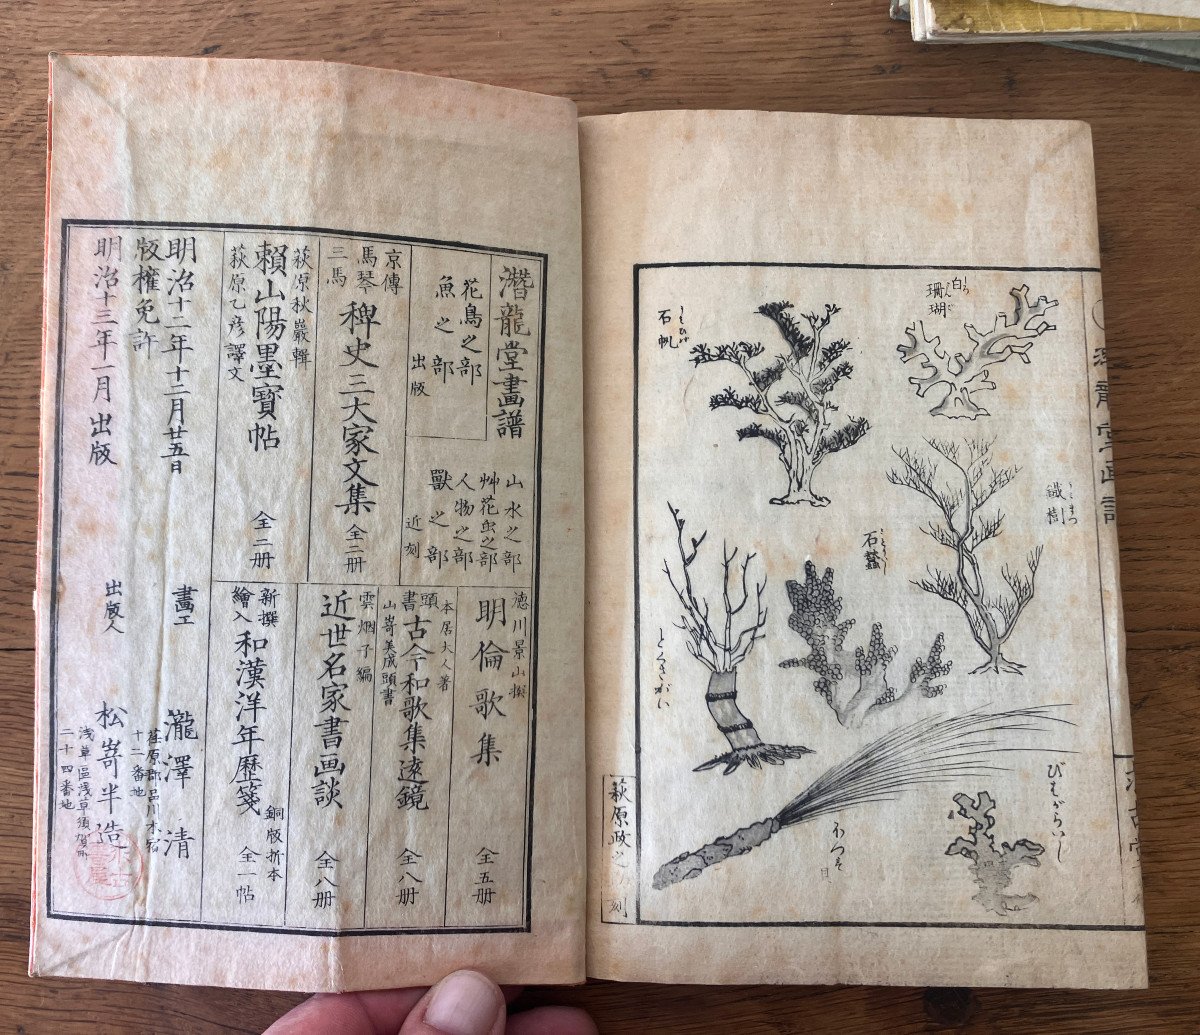 白珊瑚
石帆
鐵樹
石蠶
とくさがい
びはがらいし
ほつす貝
萩原政之刻
潛龍堂畫譜
花鳥之部
魚之部
出版
山水之部
艸花虫之部
人物之部
獸之部
近刻
京傳
馬琴
三馬
稗史三大家文集
全二册
萩原秋巖輯
賴山陽墨寶帖
萩原乙彦譯文
全二册
德川景山撰
明倫歌集
全五册
本居大人著
頭書
古今和歌集遠鏡
山嵜美成頭書
全八册
雲烟子編
近世名家書画談
全八册
新撰
繪入
和漢洋年歷箋
銅版折本
全一帖
明治十二年十二月廿五日
版權免許
明治十三年一月出版
畫工
瀧澤清
荏原郡品川本宿
十二番地
出版人
松嵜半造
浅草區浅草須賀町
二十四番地